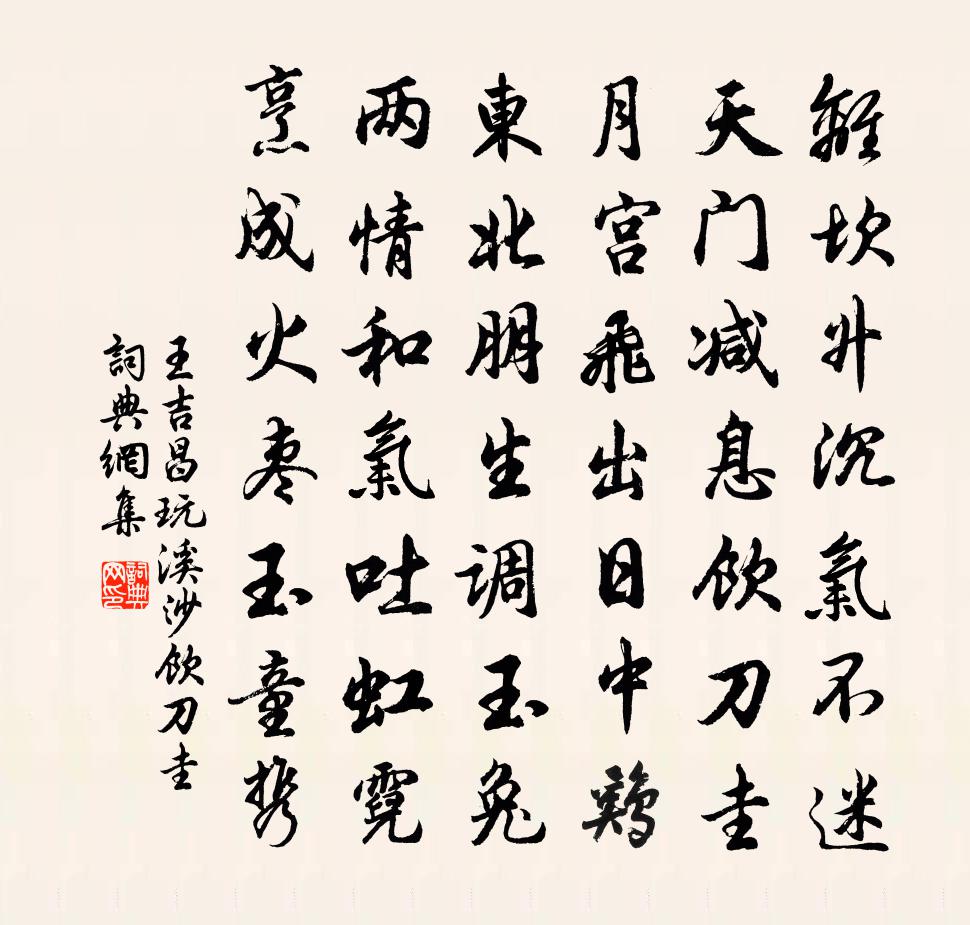 離坎升沉氣不迷
天门减息飲刀圭
月宫飛出日中鷄
東北朋生调玉兔
两情和氣吐虹霓
烹成火枣玉童携
王吉昌玩溪沙飲刀圭
詞典網集
詞典网印